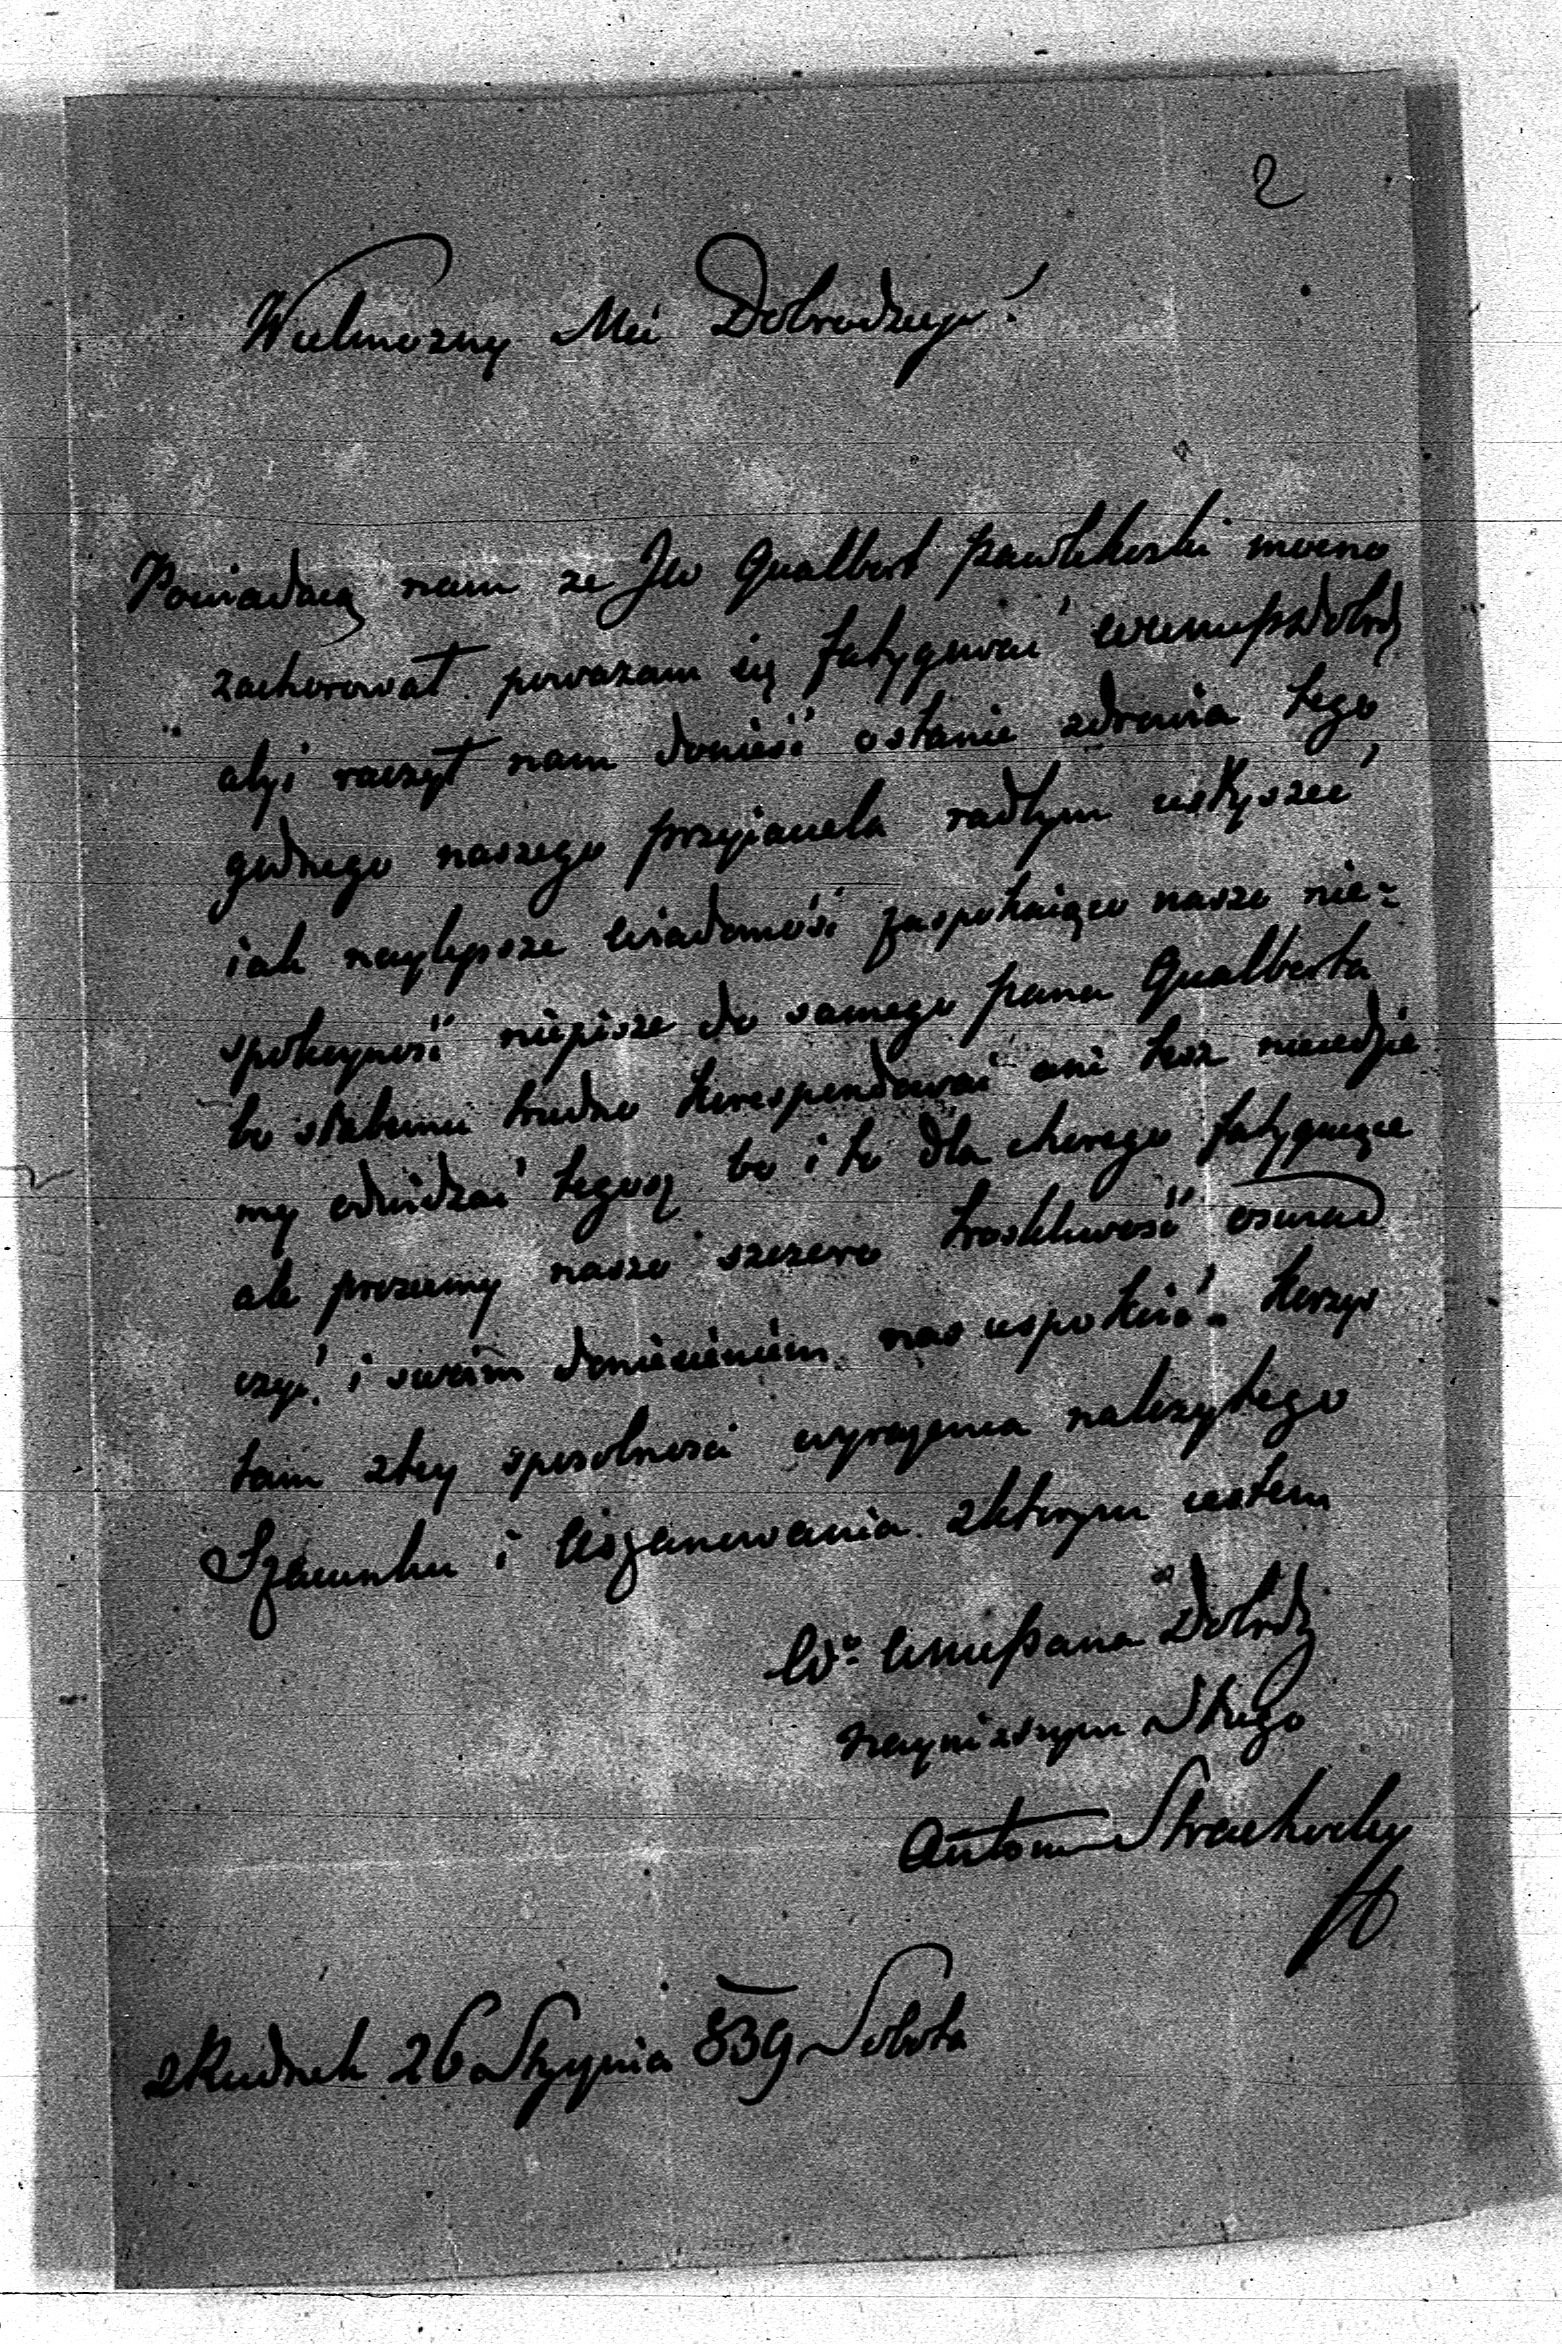 2
Wielmozny Mci Dobrodzieju!
Powiadaią nam ze JW Gualbert Pawlikoski mocno
zachorował powazam się fatygować
abyś raczył nam donieść ostanie zdrowia tego
godnego naszego przyiaciela radbym usłyszeć
iak naylepsze wiadomości zaspokaiąco nasze nie=
spokoyność niepisze do samego pana Gualberta
bo słabemu trudno korespondować ani tesz niiedzie
my odwidzać tegosz bo i to dla chorego fatyguiące
ale proziemy nasze szczere troskliwość oswiad
czyć i swoim doniesieniem nas uspokoić. korzys
tam ztey sposobnosci wyrazenia nalezytego
Szacunku i Uszanowania zktorym iestem
Dobrdz
nayniszym Sługo
Antoni Strachocky
zRudnik 26 Stycznia 839 Sobota